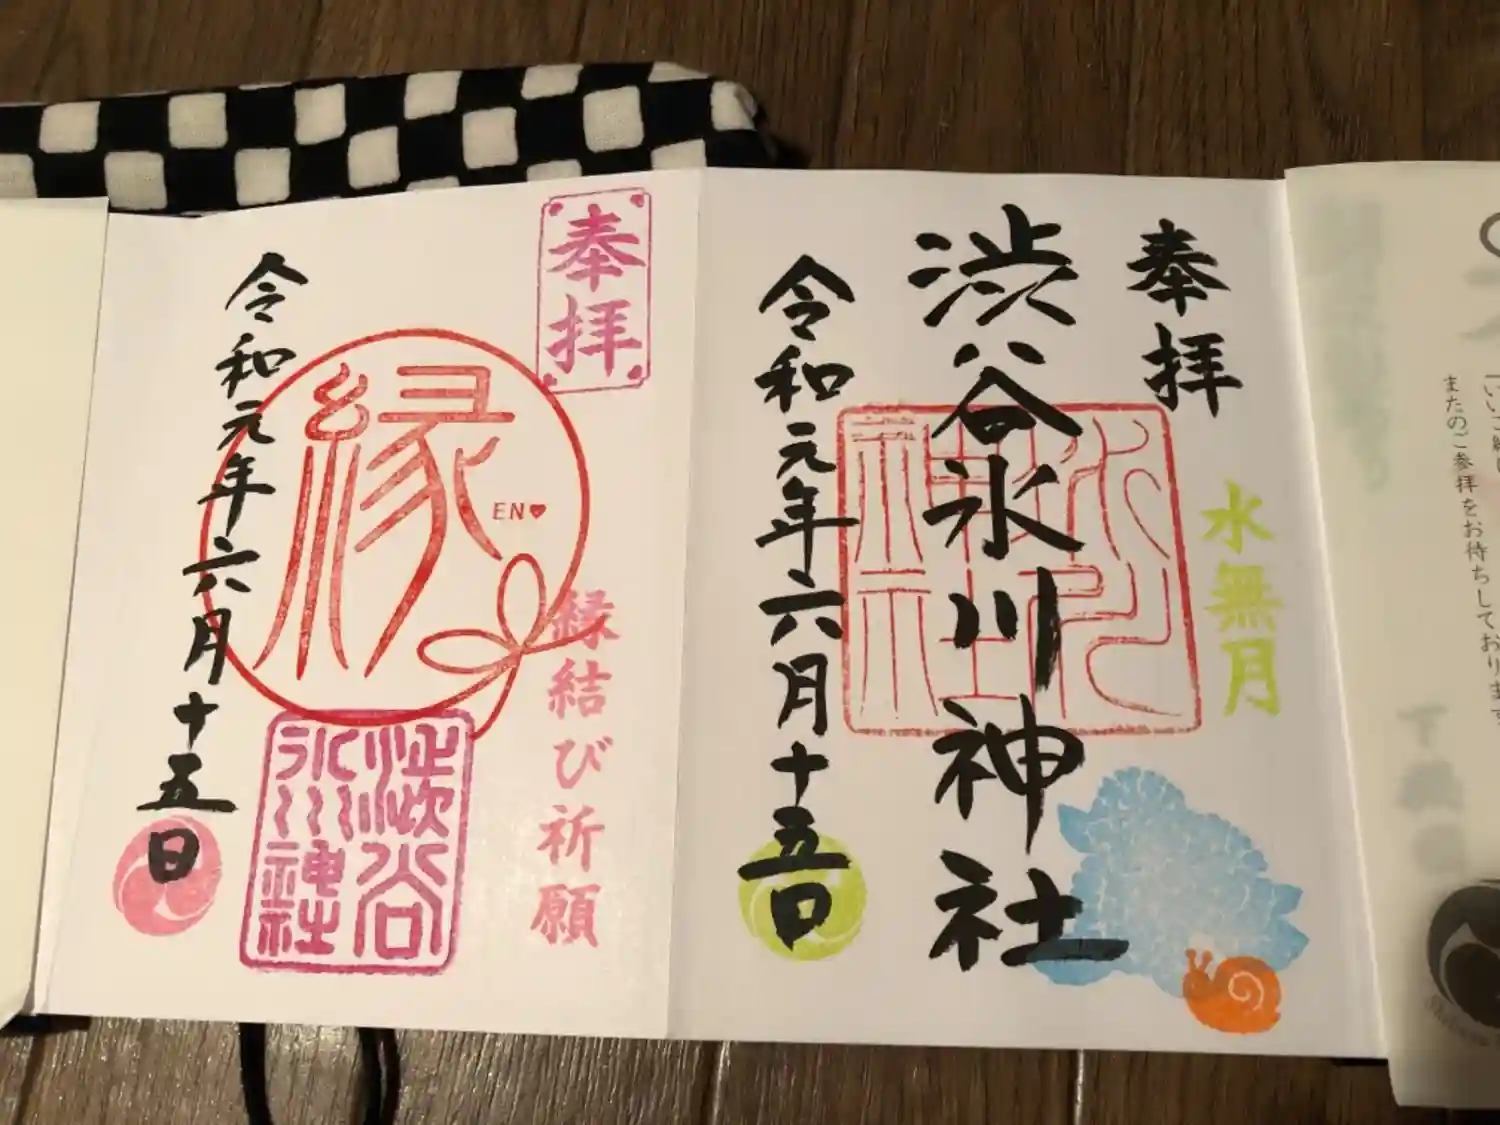 奉拝
水無月
渋谷氷川神社
令和元年六月十五日
奉拝
縁結び祈願
縁
EN♥
渋谷
氷川神社
令和元年六月十五日
またのご参拝をお待ちしております